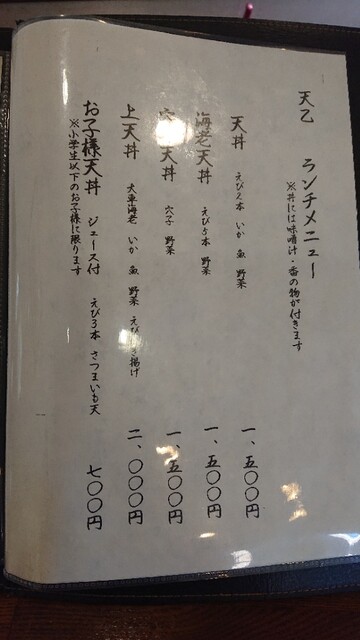 天乙 ランチメニュー
※丼には味噌汁・香の物が付きます
天丼 えび2本 いか 魚 野菜 一、五〇〇円
海老天丼 えび5本 野菜 一、五〇〇円
穴子天丼 穴子 野菜 一、五〇〇円
上天丼 大車海老 いか 魚 野菜 えび 揚げ 二、〇〇〇円
お子様天丼 ジュース付 えび3本 さつまいも天 七〇〇円
※小学生以下のお子様に限ります